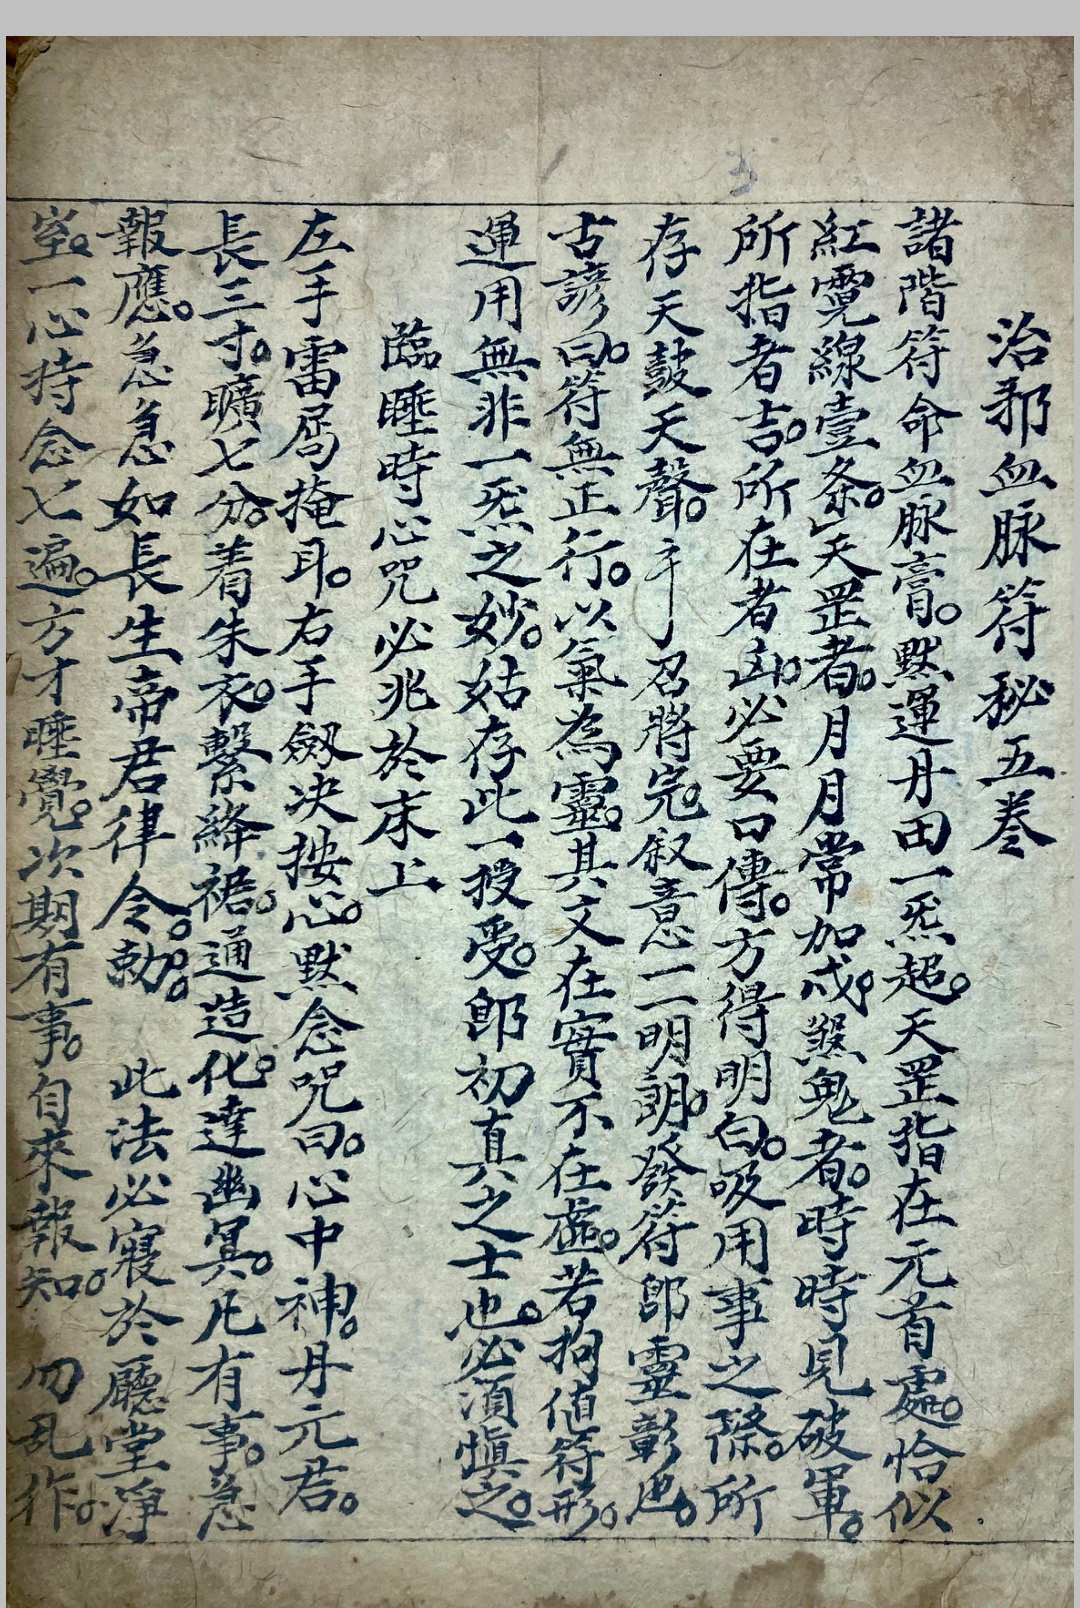 治邪血脉符秘五卷
諸階符命血脉膏。默運丹田一炁超。天罡指在元首處。恰似
紅霓線壹条。天罡者。月月常加戌。煞鬼者。時時見破軍。
所指者吉。所在者凶。必要口傳。方得明白。吸用事之際。所
存天鼓天聲。召將完。叙意一一明朗。發符即靈彰也。
古諺曰。符無正行。以氣為靈。其文在實不在虛。若拘値符形。
運用無非一炁之妙。姑存此一授受。即初真之士也。必須慎之。
臨睡時心咒必兆於床上
左手雷局掩耳。右手劔决按心。默念咒曰。心中神。丹元君。
長三寸。曠七分。着朱衣。繫絳裙。通造化。達幽冥。凡有事。急
報應。急急如長生帝君律令。勅。 此法必寢於廳堂淨
室。一心持念七遍。方才睡覺。次期有事。自來報知。 勿乱作。